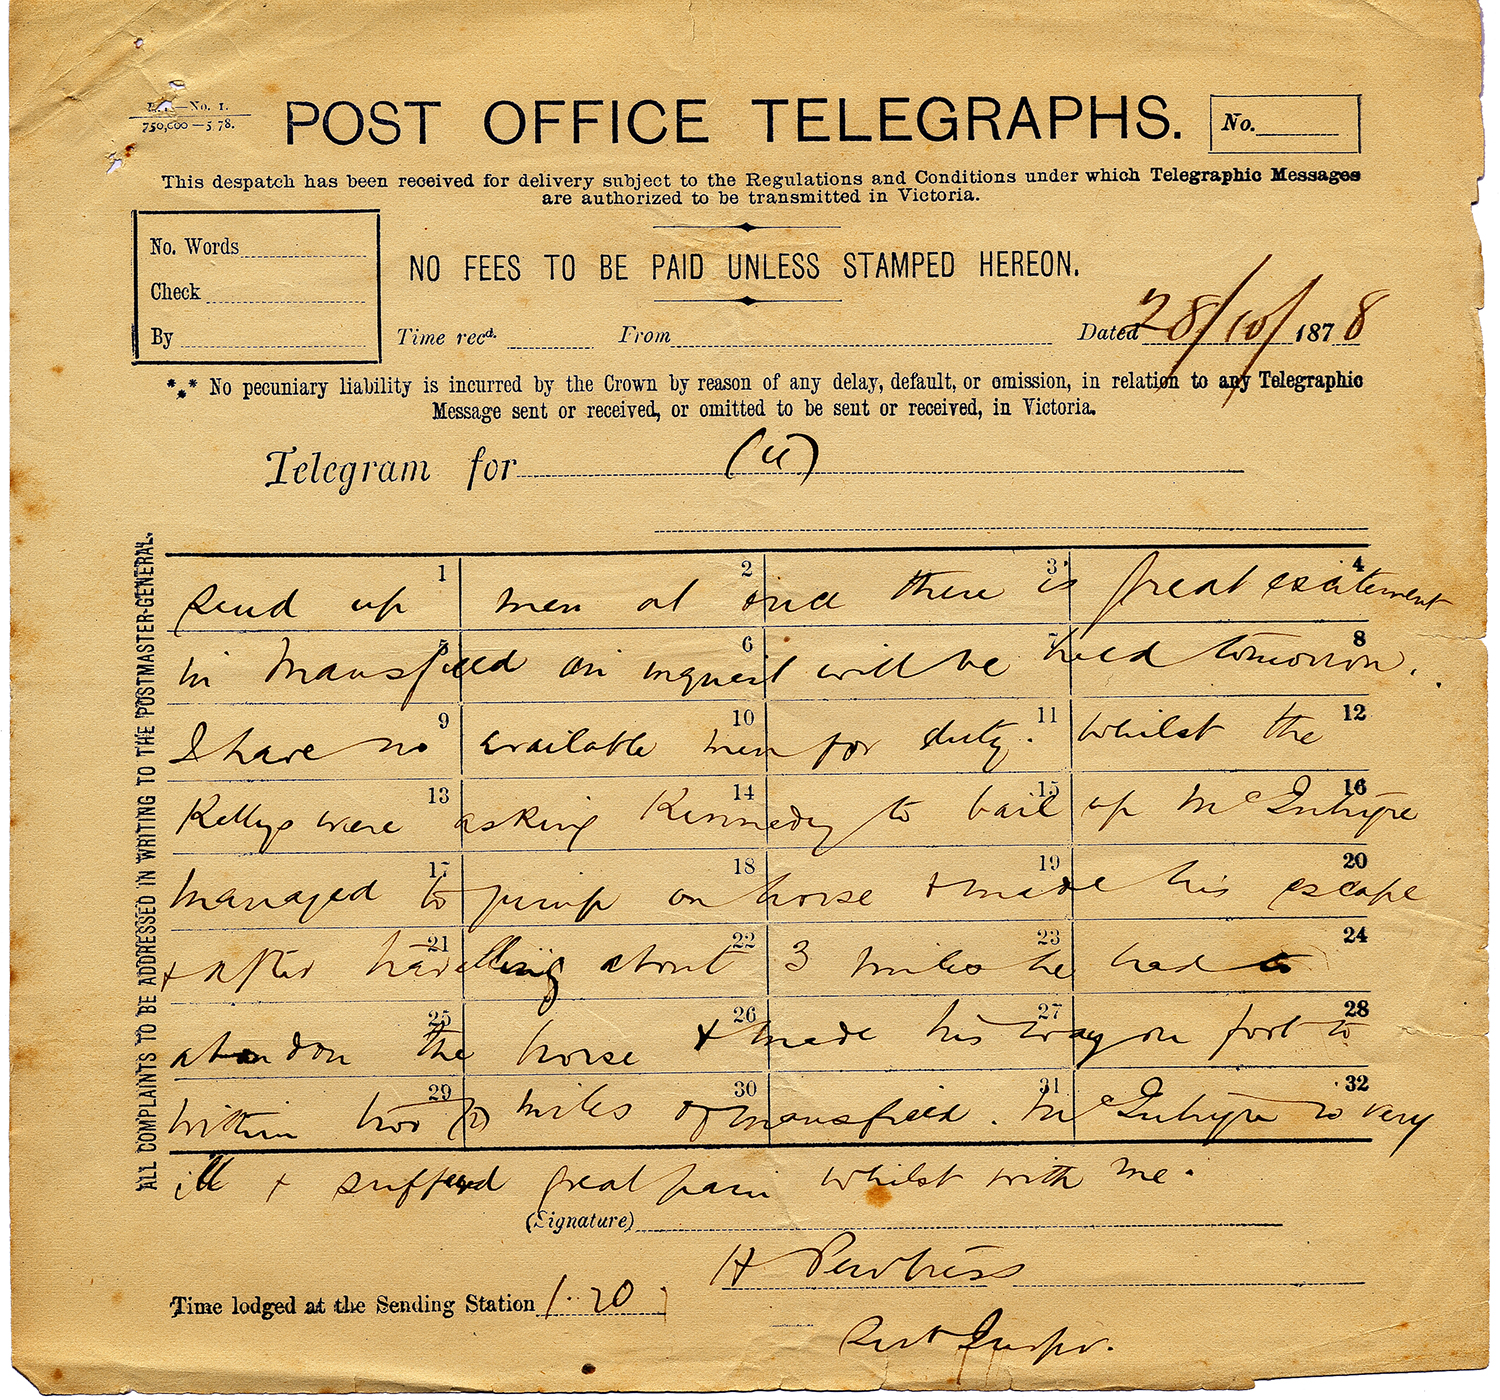 B.1.—No. 1.
750,000—5.78.
POST OFFICE TELEGRAPHS.
No.
This despatch has been received for delivery subject to the Regulations and Conditions under which Telegraphic Messages
are authorized to be transmitted in Victoria.
No. Words
Check
By
NO FEES TO BE PAID UNLESS STAMPED HEREON.
Time recd. From Dated 28/10/1878
*** No pecuniary liability is incurred by the Crown by reason of any delay, default, or omission, in relation to any Telegraphic
Message sent or received, or omitted to be sent or received, in Victoria.
Telegram for (ii)
ALL COMPLAINTS TO BE ADDRESSED IN WRITING TO THE POSTMASTER-GENERAL.
1 2 3 4
Send up men at once there is great excitement
5 6 7 8
in Mansfield an inquest will be held tomorrow.
9 10 11 12
I have no available men for duty. whilst the
13 14 15 16
Kellys were asking Kennedy to bail up McIntyre
17 18 19 20
managed to jump on horse & made his escape
21 22 23 24
& after travelling about 3 miles he had to
25 26 27 28
abandon the horse & made his way on foot to
29 30 31 32
within two (2) miles of Mansfield. McIntyre is very
ill & suffered great pain whilst with me.
(Signature)
H Pewtress
Time lodged at the Sending Station 1.20
Sub Inspr.